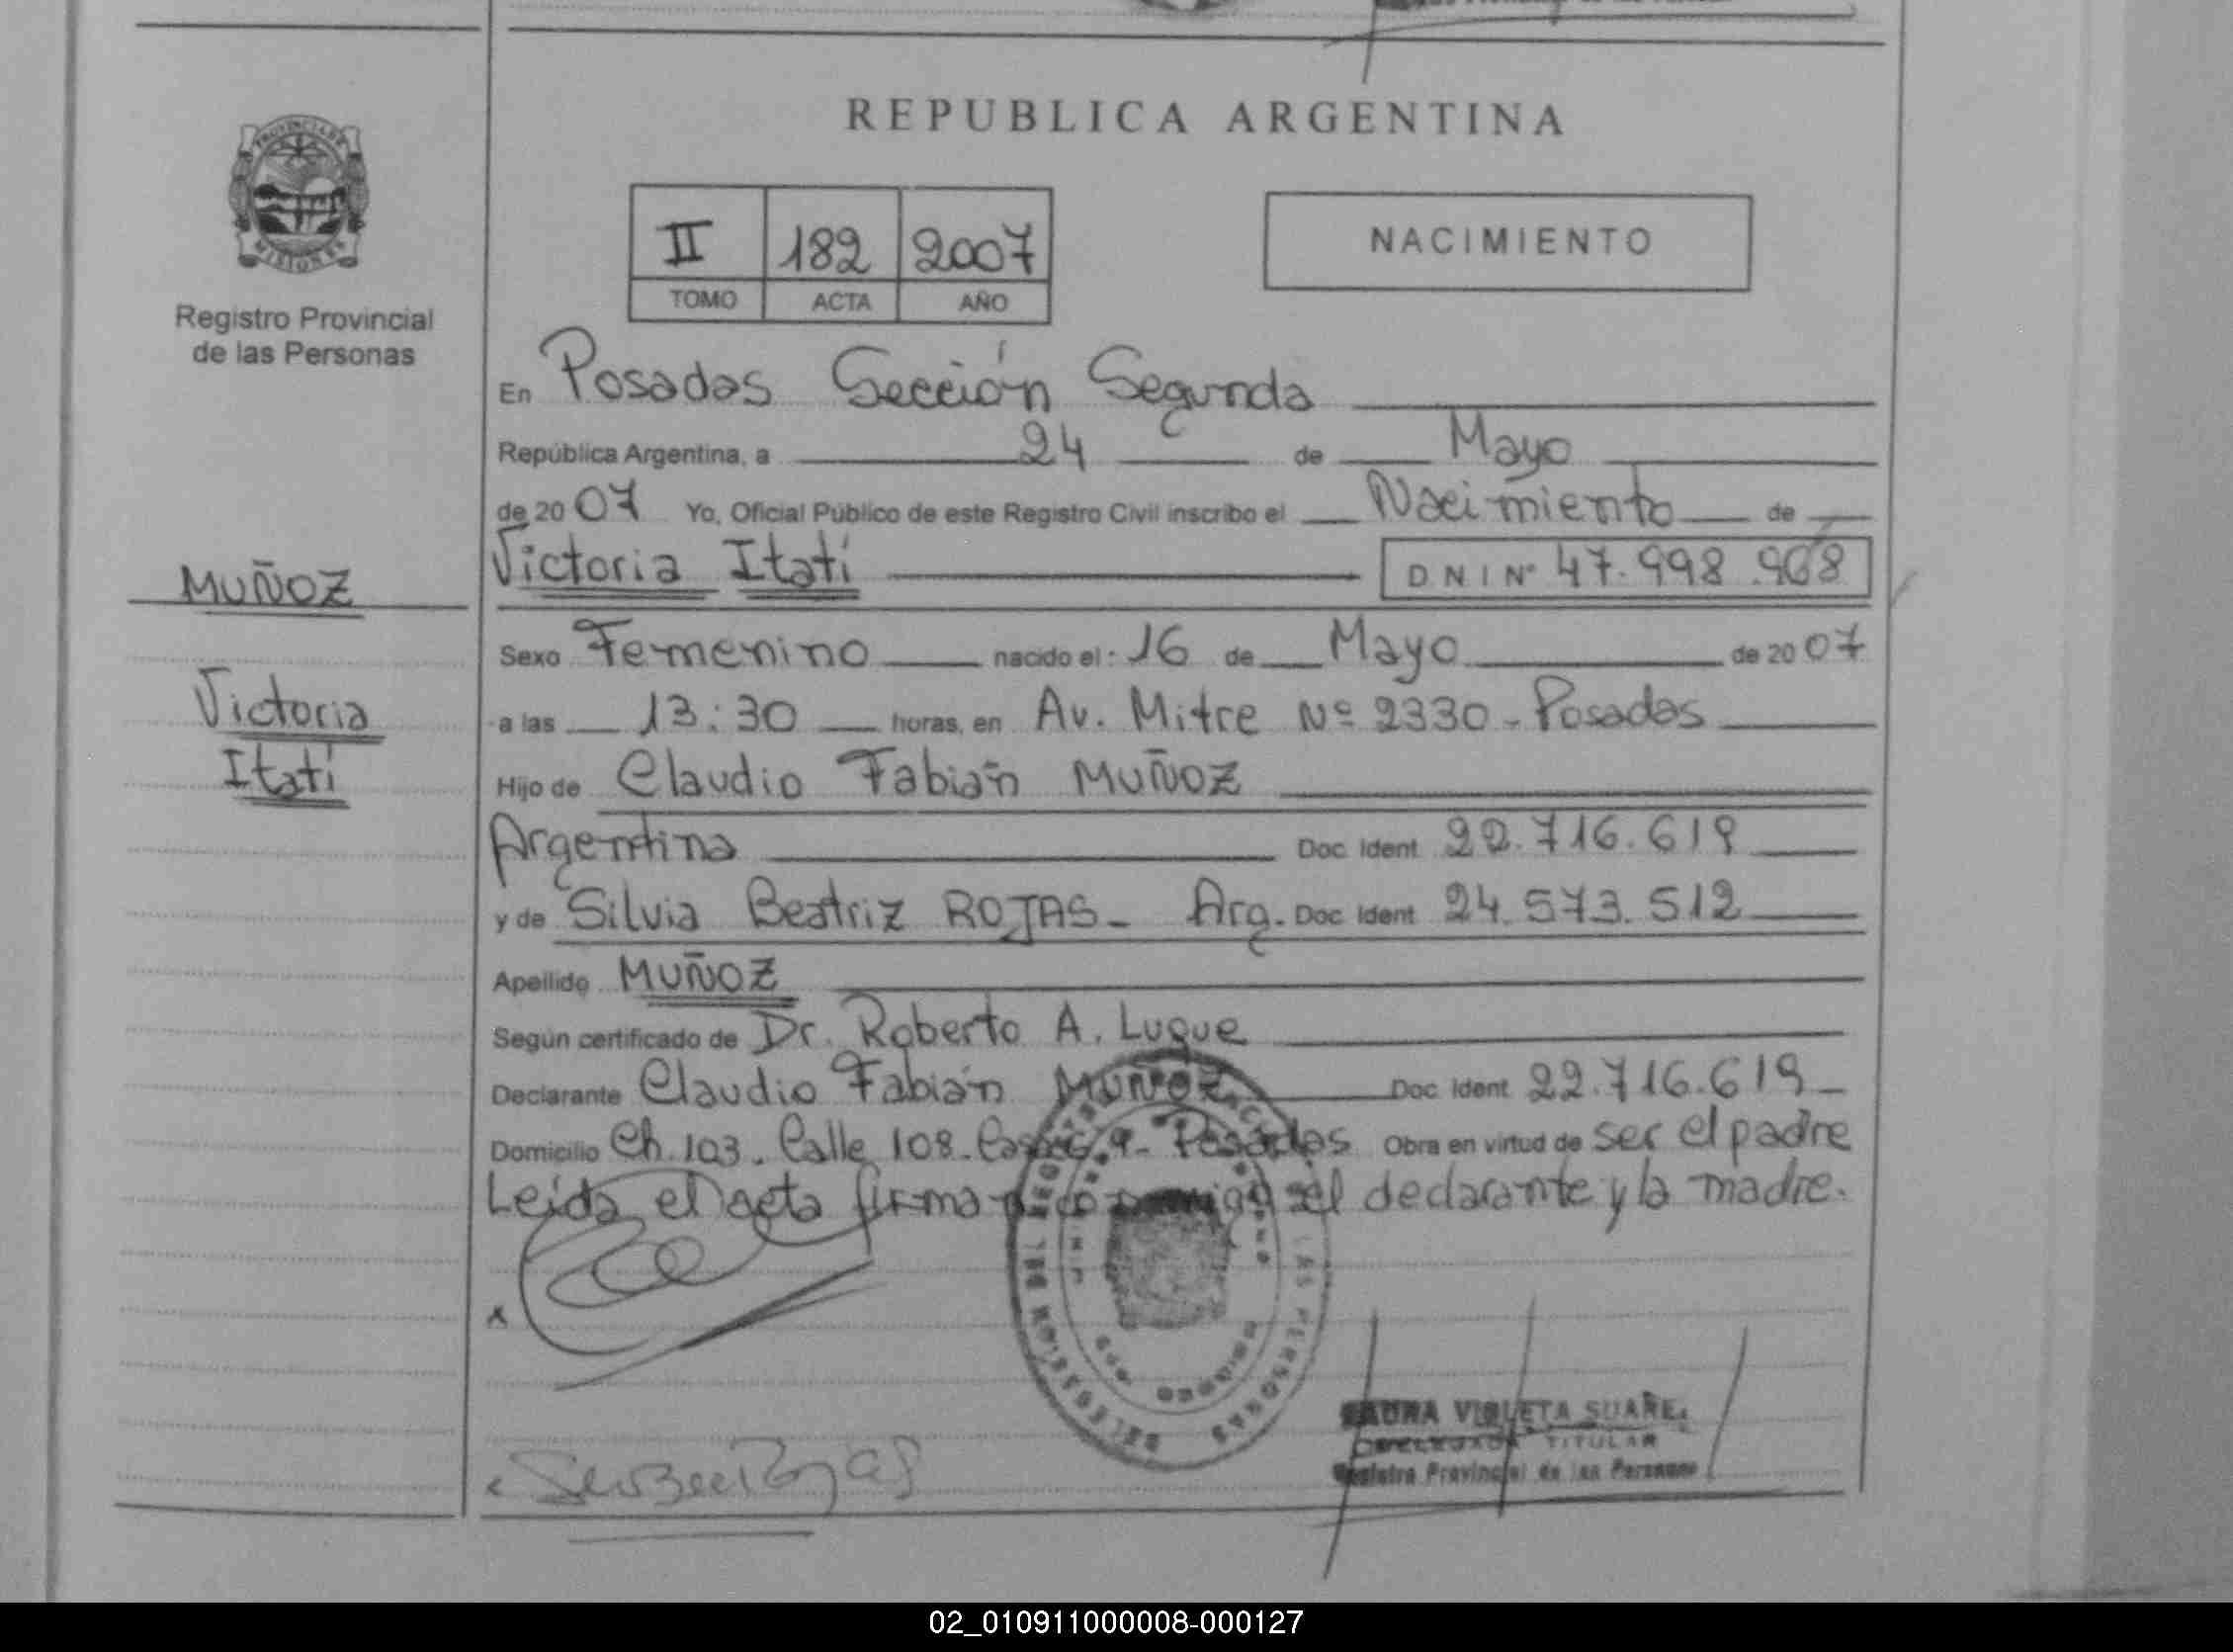 REPUBLICA ARGENTINA
PROVINCIA DE
MISIONES
Registro Provincial
de las Personas
II 182 2007
TOMO ACTA AÑO
NACIMIENTO
En Posadas Sección Segunda
República Argentina, a 24 de Mayo
de 2007 Yo, Oficial Público de este Registro Civil inscribo el Nacimiento de
Victoria Itatí DNI Nº 47.998.968
MUÑOZ
Victoria
Itatí
Sexo Femenino nacido el: 16 de Mayo de 2007
a las 13:30 horas, en Av. Mitre Nº 2330 - Posadas
Hijo de Claudio Fabián MUÑOZ
Argentina Doc Ident 22.716.619
y de Silvia Beatriz ROJAS - Arg. Doc Ident 24.573.512
Apellido MUÑOZ
Según certificado de Dr. Roberto A. Luque
Declarante Claudio Fabián MUÑOZ Doc Ident 22.716.619 -
Domicilio Ch. 103. Calle 108. Posadas Obra en virtud de ser el padre
Leída el acta firman conmigo el declarante y la madre.
x
VIOLETA SUAREZ
DELEGADA TITULAR
Registro Provincial de las Personas
02_010911000008-000127